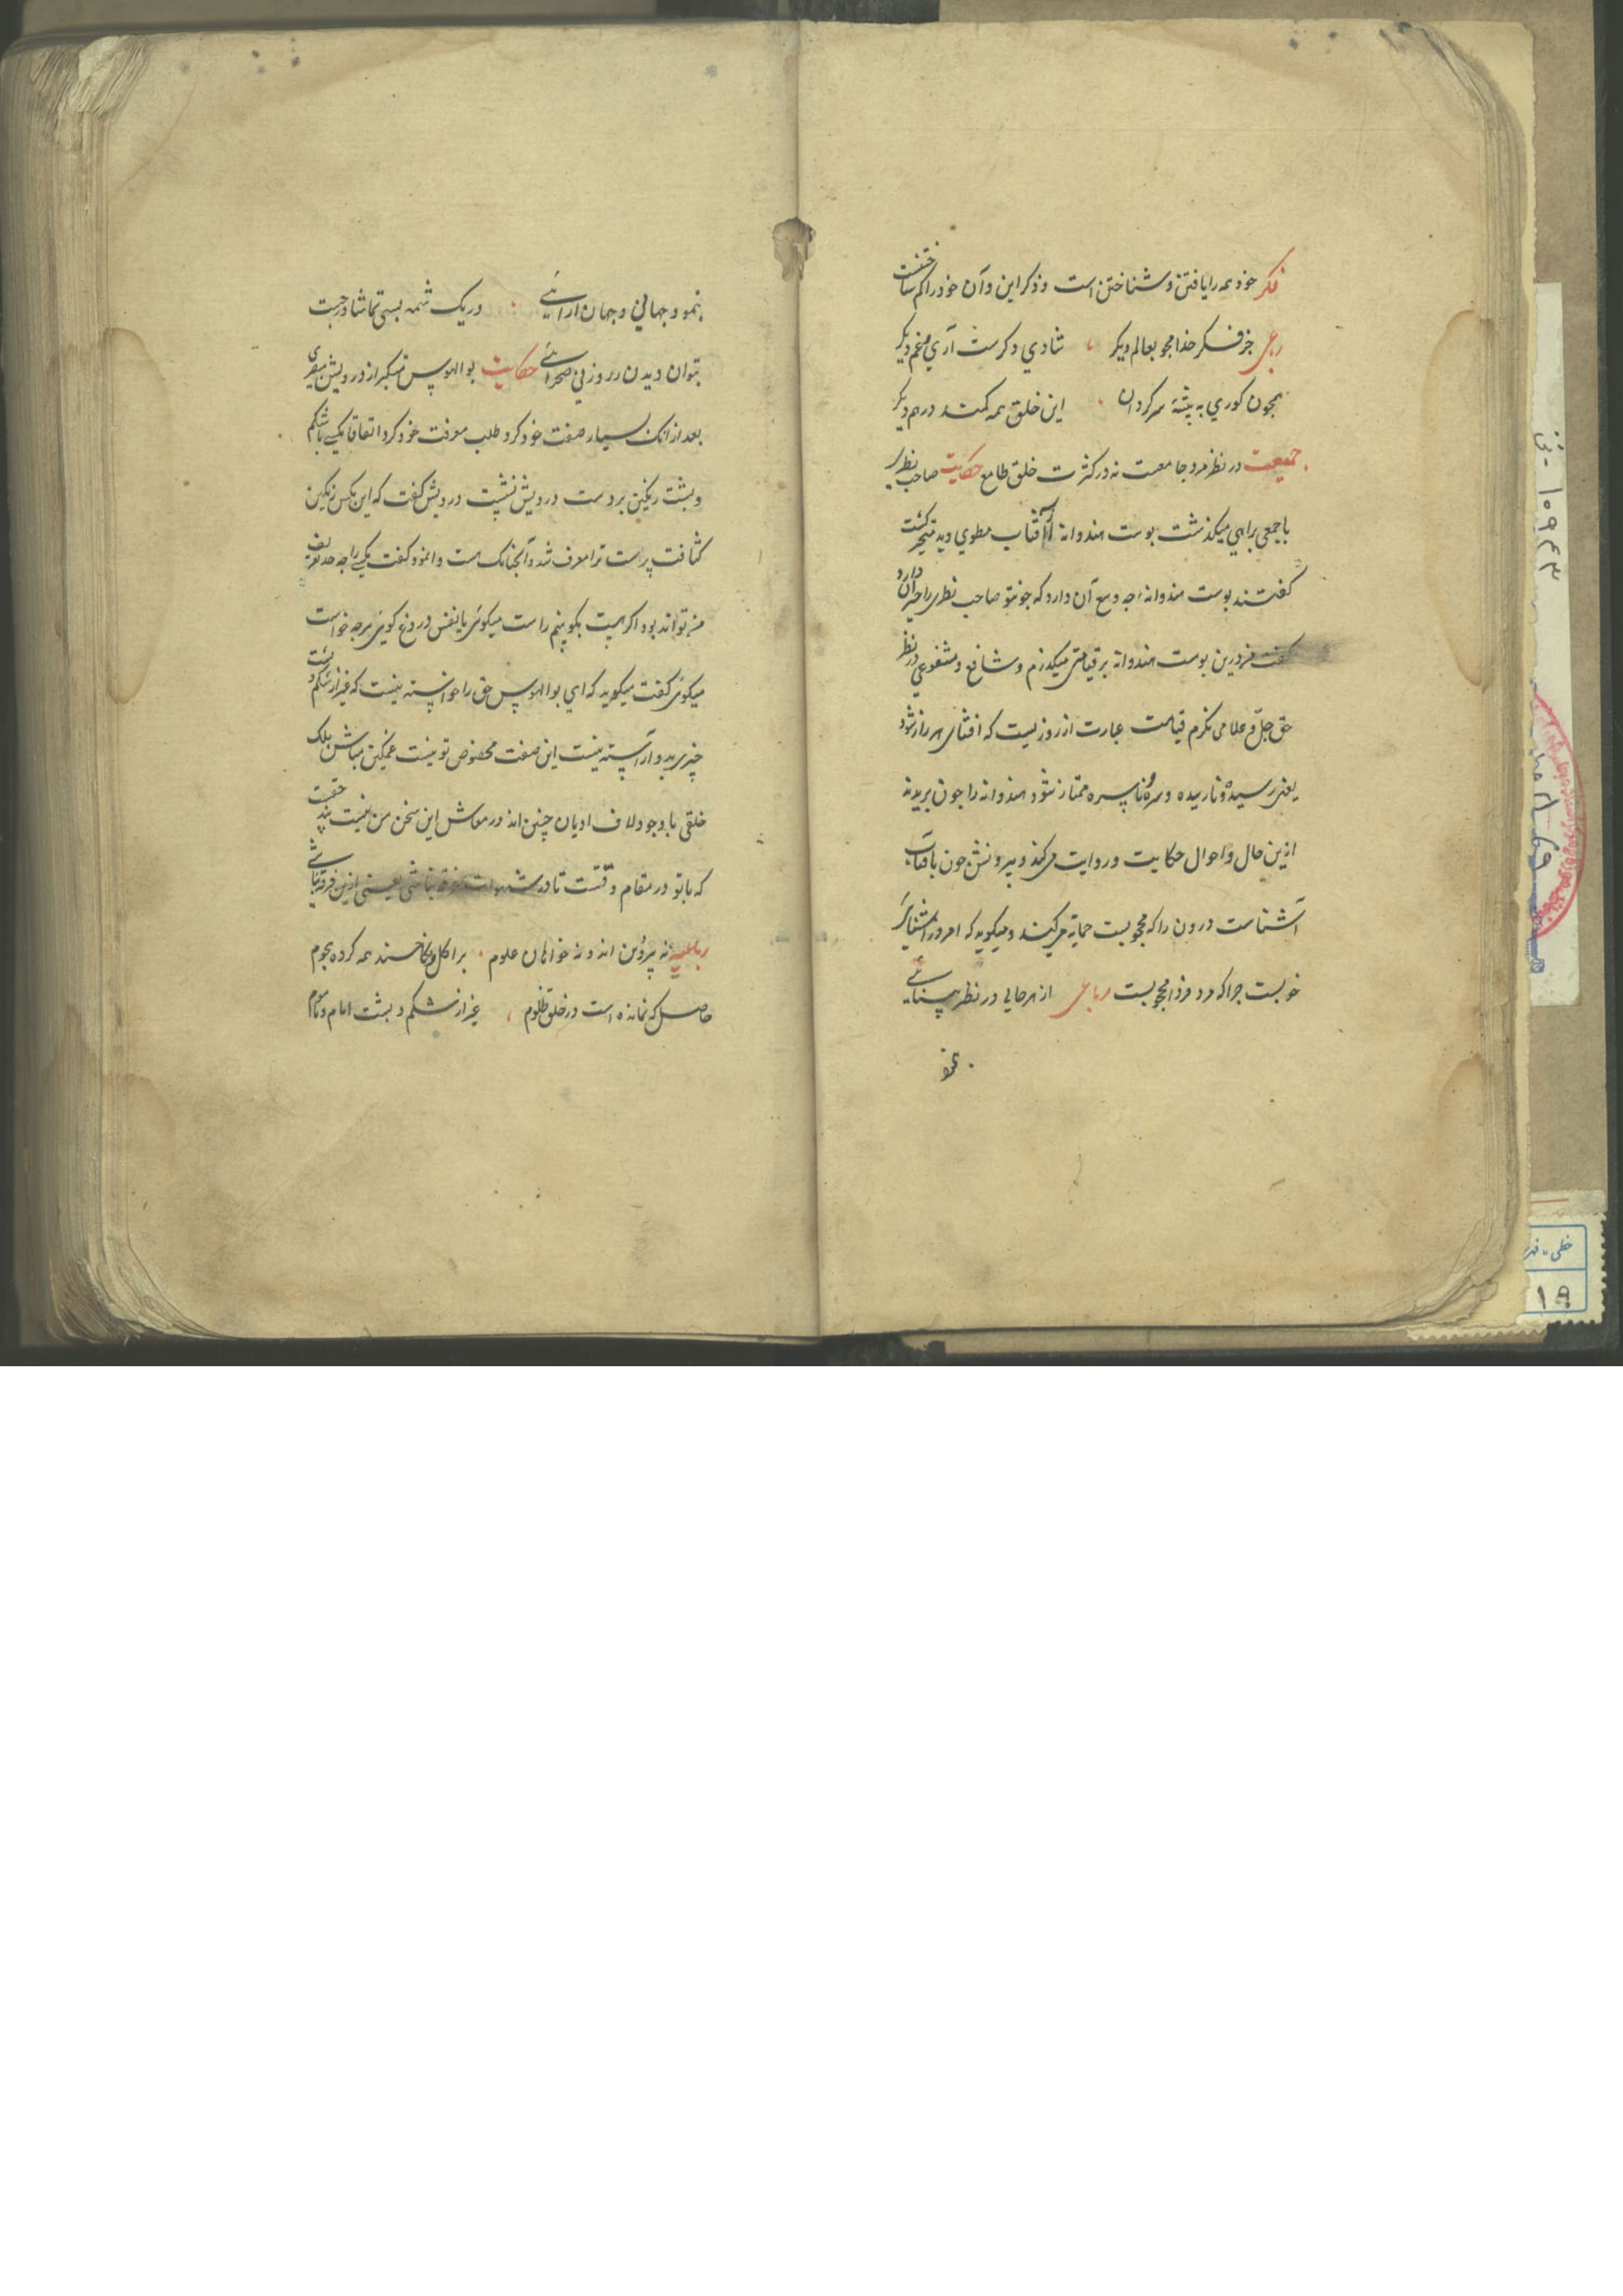 فکر خود همه را یافتن و شناختن است و ذکر این و آن خود را کم ساختنست
رباعی جز فکر خدا مجو بعالم دیگر شادی دگرست آری غم دیگر
همچون کوری به پیشهٔ سرگردان این خلق همه کمند در هم دیگر
جمعیت در نظر مرد جامعست نه در کثرت خلق طامع حکایت صاحب نظری
با جمعی براهی میگذشت پوست هندوانهٔ آفتاب مطوی دید متحیر گشت
گفتند پوست هندوانه چه وسع آن دارد که چو تو صاحب نظری را حیران دارد
گفت من درین پوست هندوانه بر قیامتی میگذرم و شافع و مشفوعی در نظر
حق جل و علا می نگرم قیامت عبارت از روزیست که افشای هر راز شود
یعنی رسیده و نارسیده و سره و ناسره ممتاز شود هندوانه را چون بریدند
ازین حال و احوال حکایت و روایت می کند و بیرونش چون بافتاب
آشناست درون را که محجوبست حمایه می کند و میگوید که امروز آشنایی
خوبست چرا که مرد فردا محجوبست رباعی از هر جایی در نظر بینائی
بنمو
بنمود جهانی و جهان آرائی در یک شمه بسی تماشا و جهت
بتوان دیدن در روزنی صحرائی حکایت بوالهوس متکبر از درویش
بعد از آنک بسیار صفت خود کرد طلب معرفت خود کرد اتفاقا مگسی با شکم
و پشت رنگین بر دست درویش نشست درویش گفت که این مگس رنگین
کثافت پرست ترا معرف شد و آنچنانک هست وانمود گفت مگسی را چه حد تعریف
من تواند بود اگر هست بگو بینم راست میگوئی یا نفس دروغ گوئی هر چه خواست
میگوئی گفت میگوید که ای بوالهوس حق را خواسته نیست که غیر از شکم و پشت
چیزی بدو آراسته نیست این صفت مخصوص تو نیست غمگین مباش بلک
خلقی با وجود لاف ادیان چنین اند در معاش این سخن من نیست پند حقیست
که با تو در مقام دقتست تا در شهوات غرقه نباشی یعنی ازین فرقه نباشی
رباعیه نه پیرو دین اند و نه خواهان علوم بر اکل و نکاحسند همه کرده هجوم
حاصل که نمانده است در خلق ظلوم غیر از شکم و پشت امام و ماموم